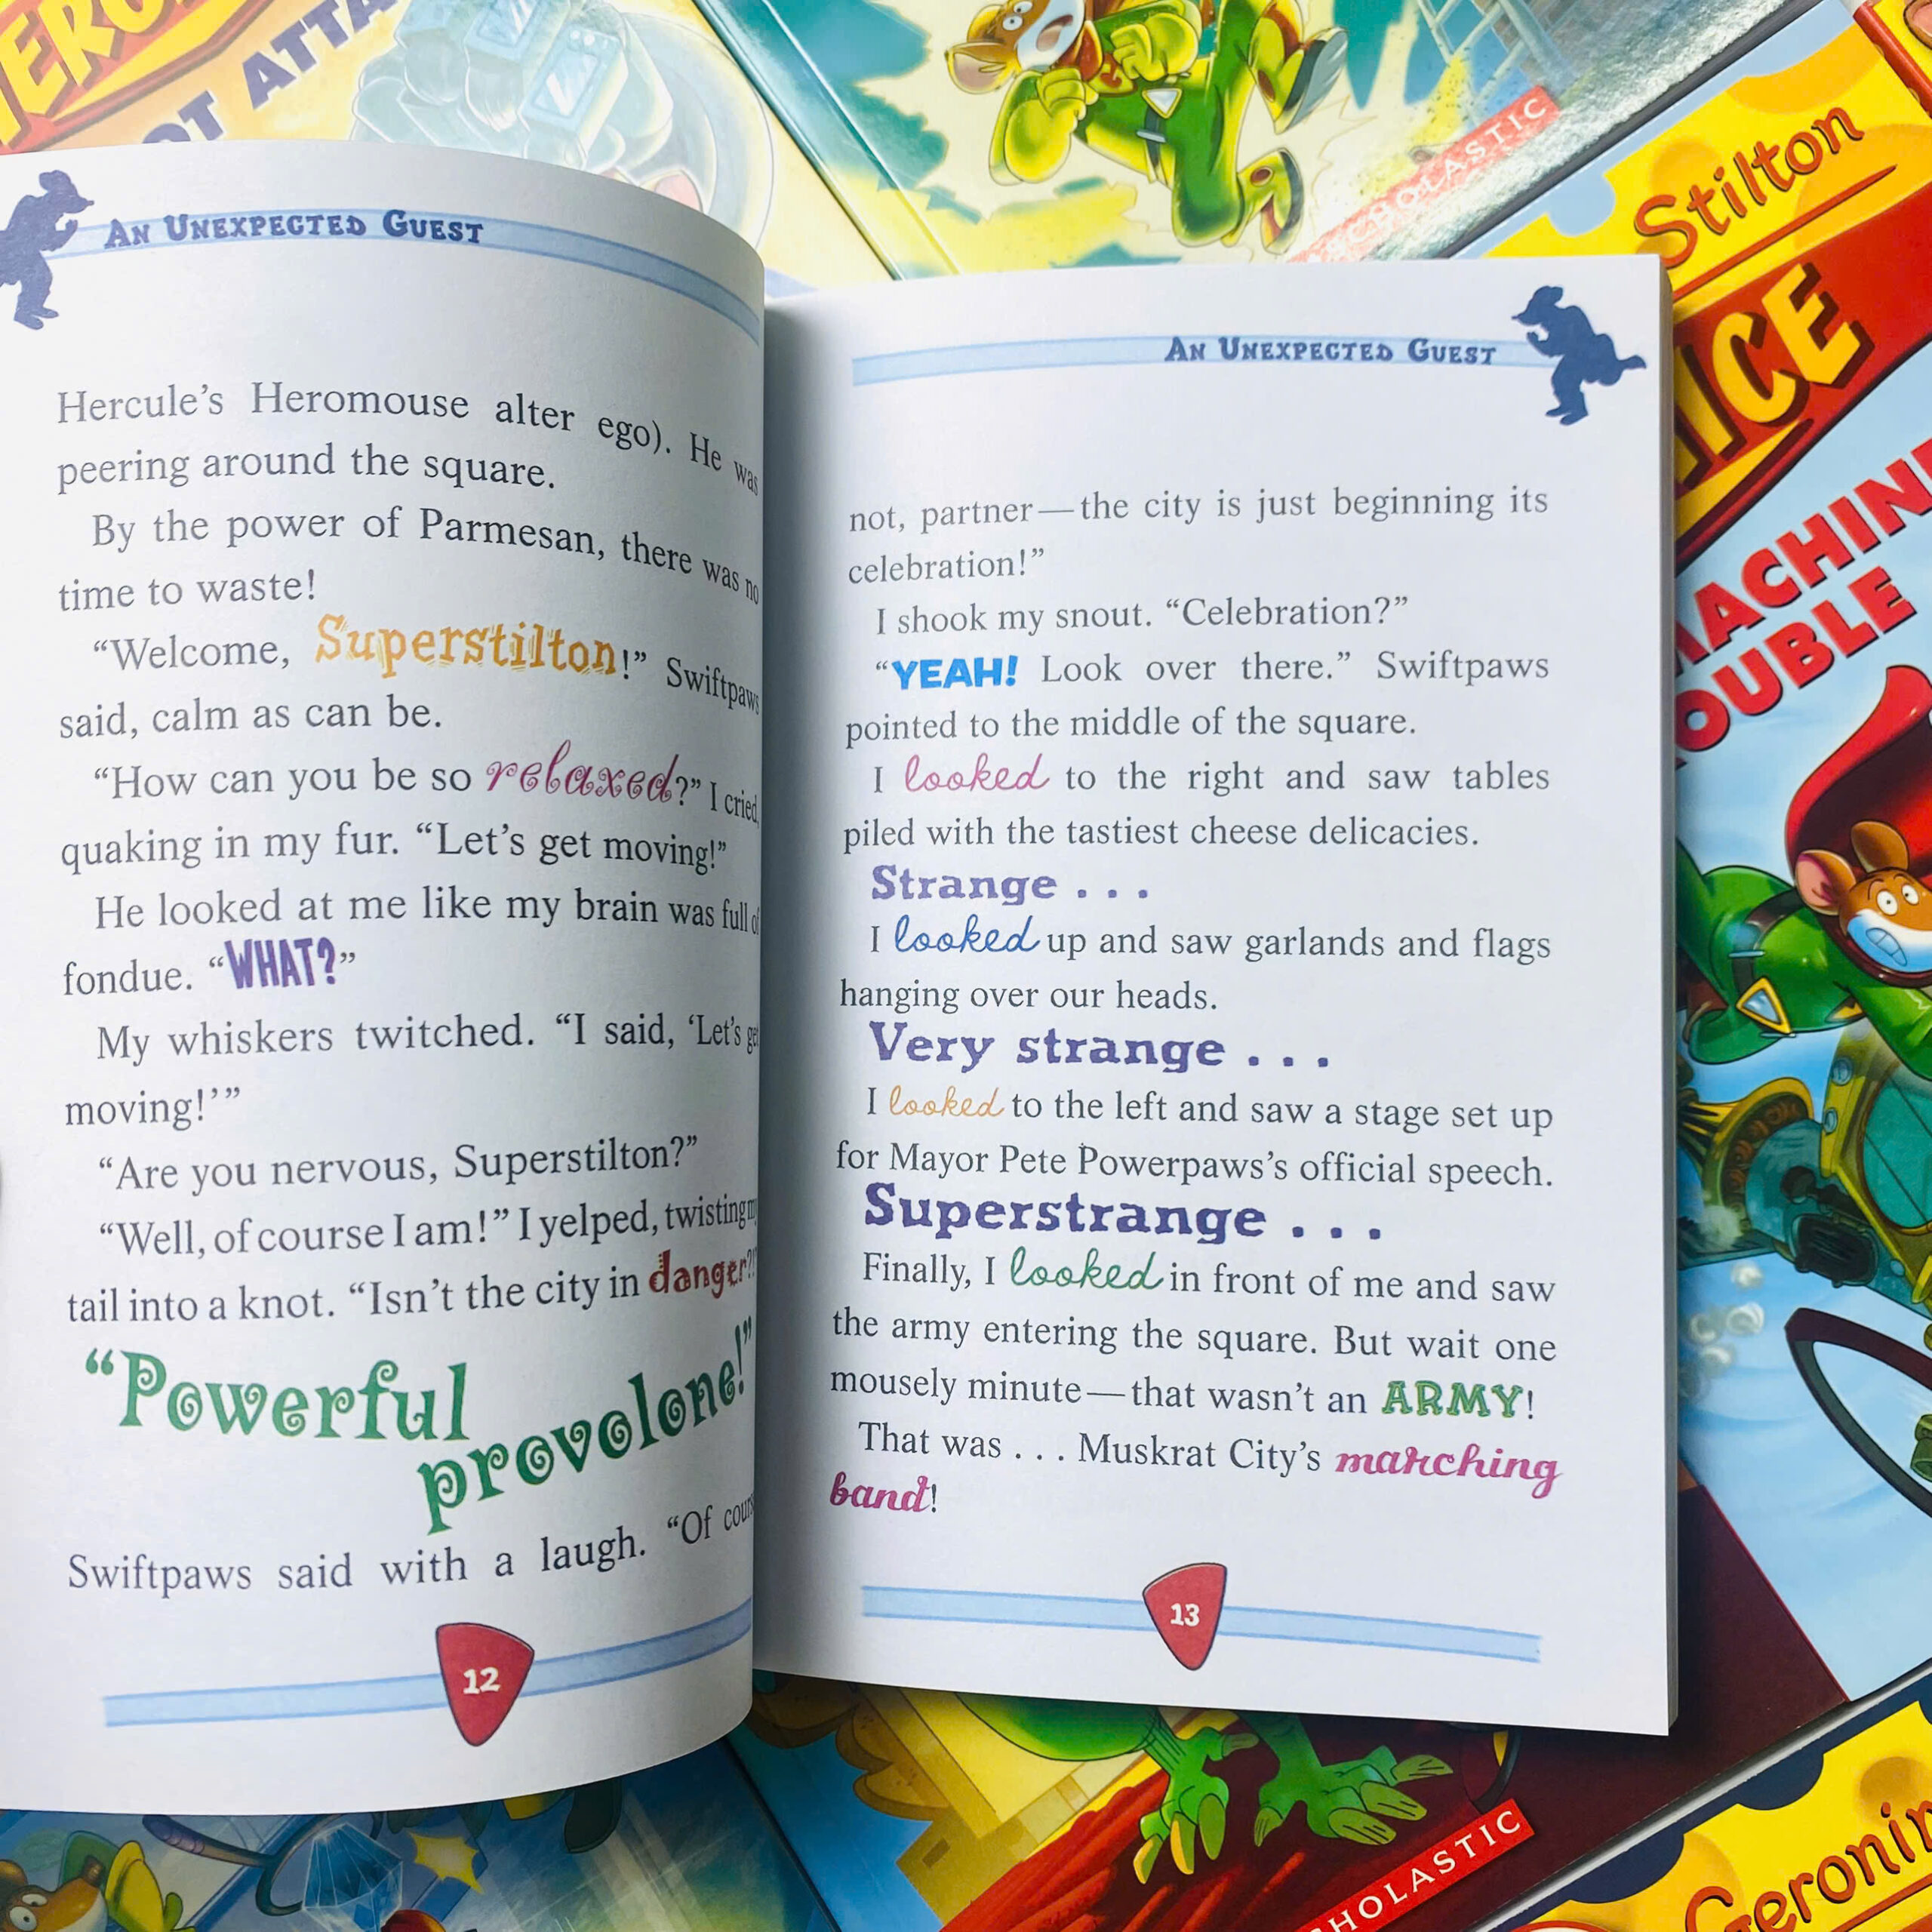 AN UNEXPECTED GUEST
Hercule's Heromouse alter ego). He was
peering around the square.
By the power of Parmesan, there was no
time to waste!
“Welcome, Superstilton!” Swiftpaws
said, calm as can be.
“How can you be so relaxed?” I cried,
quaking in my fur. “Let's get moving!”
He looked at me like my brain was full of
fondue. “WHAT?”
My whiskers twitched. “I said, ‘Let's get
moving!’”
“Are you nervous, Superstilton?”
“Well, of course I am!” I yelped, twisting my
tail into a knot. “Isn't the city in danger?”
“Powerful
provolone!”
Swiftpaws said with a laugh. “Of
12
AN UNEXPECTED GUEST
not, partner—the city is just beginning its
celebration!”
I shook my snout. “Celebration?”
“YEAH! Look over there.” Swiftpaws
pointed to the middle of the square.
I looked to the right and saw tables
piled with the tastiest cheese delicacies.
Strange . . .
I looked up and saw garlands and flags
hanging over our heads.
Very strange . . .
I looked to the left and saw a stage set up
for Mayor Pete Powerpaws's official speech.
Superstrange . . .
Finally, I looked in front of me and saw
the army entering the square. But wait one
mousely minute—that wasn't an ARMY!
That was . . . Muskrat City's marching
band!
13
SCHOLASTIC
Stilton
SCHOLASTIC